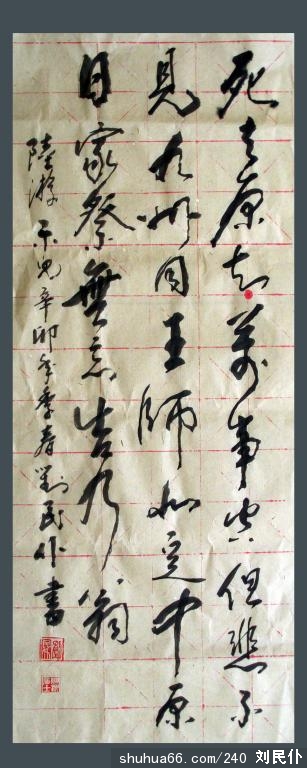 死去原知萬事空但悲不
見九州同王師北定中原
日家祭無忘告乃翁
陸游示兒辛卯年季春劉民仆書
shuhua66.com/240 刘民仆